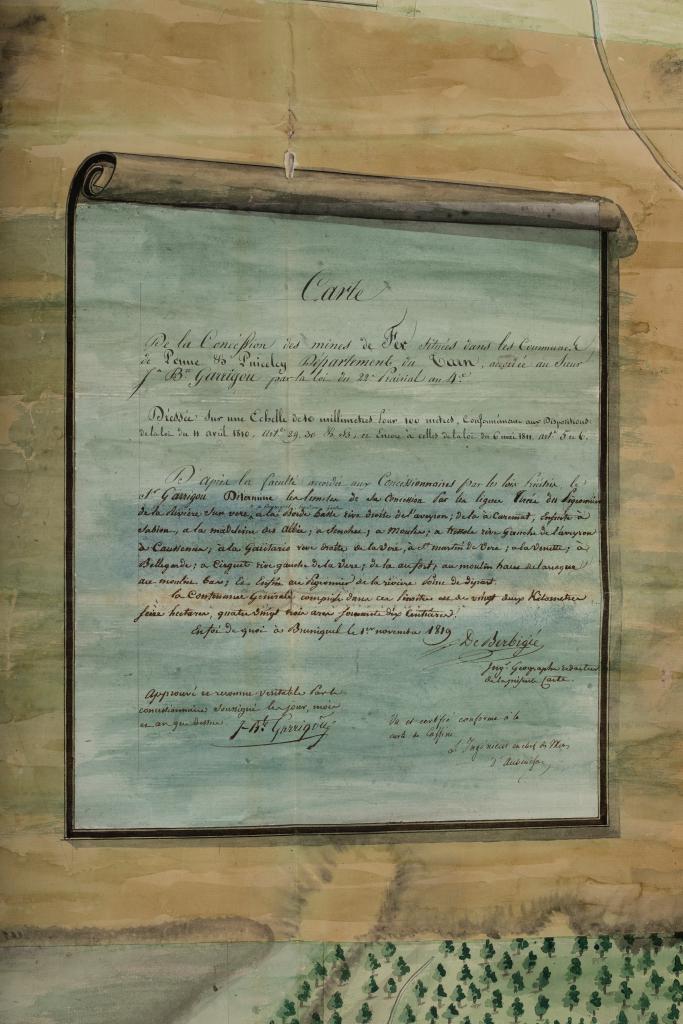 Carte
De la Concession des mines de Fer Situées dans les Communes
de Penne & Puiceley Département du Tarn, accordée au Sieur
Jn Bte Garrigou par la loi du 22e Prairial an 4e
Dressée Sur une Echelle de 10 millimetres Pour 100 metres, Conformément aux Dispositions
de la loi du 11 avril 1810, art. 29, 30 et Encore à celles de la loi du 6 mai 1811 art. 5 et 6.
D'après la faculté accordée aux Concessionnaires par les lois le
Sr Garrigou Détermine les limites de sa Concession Par les lignes tirées du Pigeonnier
de la Rivière Sur vere; à la Borde Basse rive droite de l'aveyron; de là à Cazemat, Ensuite à
Sabion, a la madeleine des Albis; a Senchet; a Moules; a trossole rive Gauche de l'aveyron
a Caussenia; à la Gauitario rive droite de la Vere; à St martin de Vere; a la Venette; à
Bellegarde; a Cinquet rive gauche de la Vere; de là au fort; au moulin haut de Larroque
au moulin bas; et Enfin au Pigeonnier de la rivière Point de départ.
la Contenance Générale comprise dans ces limites est de vingt deux Kilometres
seize hectares, quatre vingt trois ares soixante dix Centiares.
En foi de quoi à Bruniquel le 1er novembre 1819
De Berbigié
Ingr Geographe redacteur
de la présente Carte.
Approuvé et reconnu veritable Par le
concessionnaire Soussigné les jour, mois
et an que dessus
J-Bte Garrigou
Vu et certifié conforme à la
carte de Cassini
L'Ingénieur en chef des Mines
D'Aubuisson